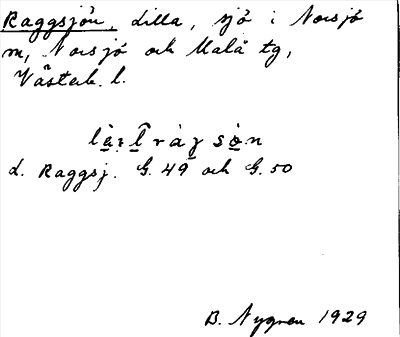 Raggsjön, Lilla, sjö i Norsjö
m, Norsjö och Malå tg,
Västerb. l.
L. Raggsj. G. 49 och G. 50
B. Nygren 1929